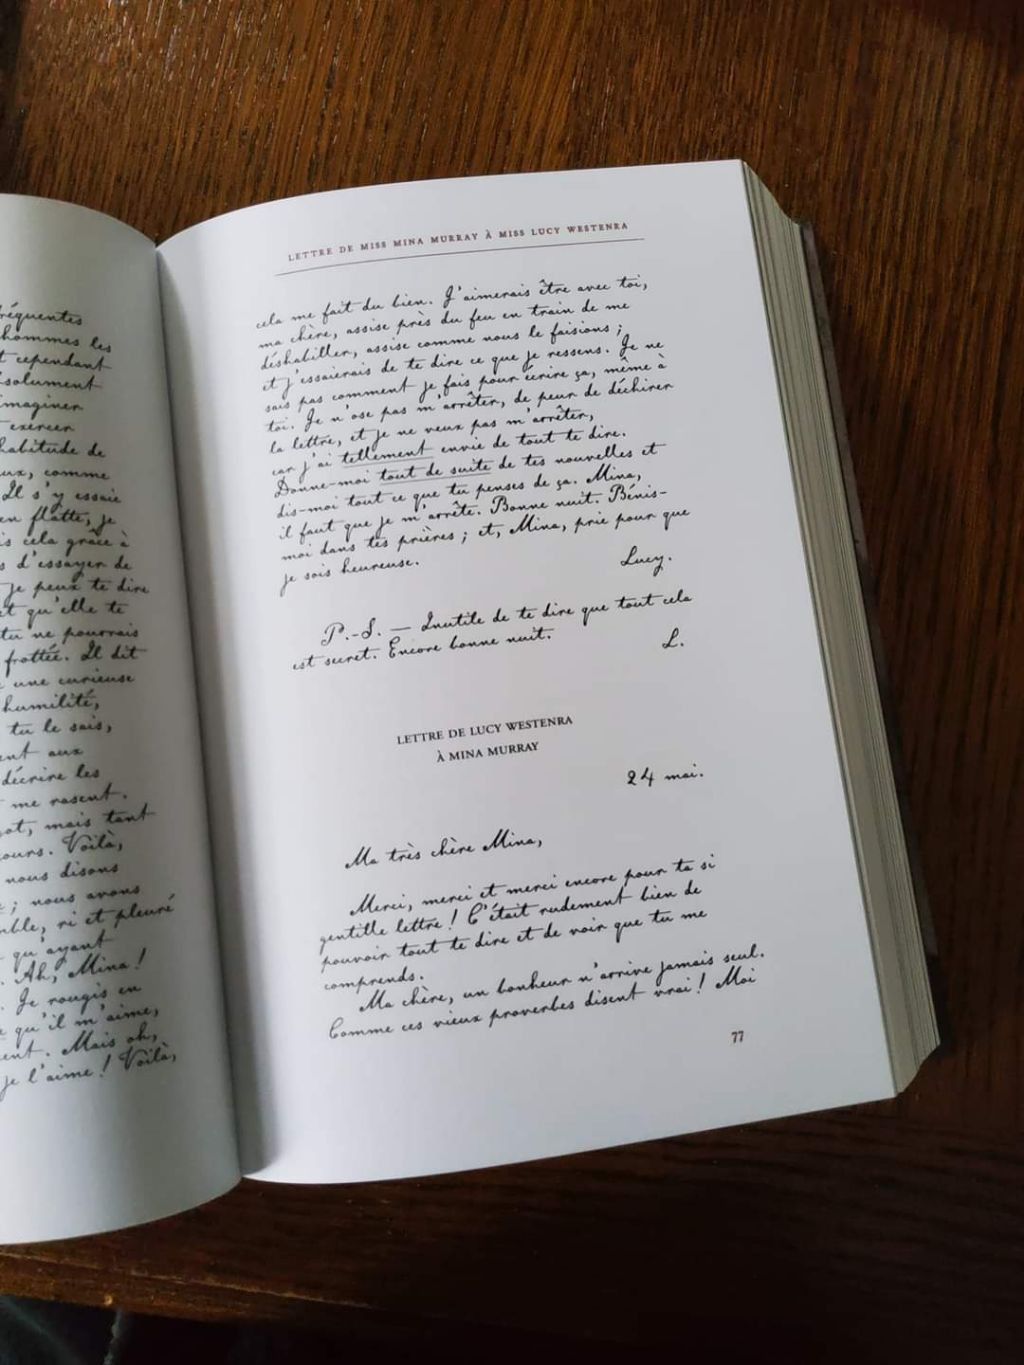 réquentes
hommes les
t cependant
solument
imaginer
exercer
habitude de
ux, comme
Il s'y essaie
en flatte, je
is cela grâce à
s d'essayer de
je peux te dire
et qu'elle te
tu ne pourrais
frottée. Il dit
une curieuse
humilité,
tu le sais,
ent aux
décrire les
me rasent.
got, mais tant
ours. Voilà,
nous disons
; nous avons
mble, ri et pleuré
qu'ayant
. Ah, Mina !
. Je rougis en
qu'il m'aime,
ent. Mais oh,
je l'aime ! Voilà,
LETTRE DE MISS MINA MURRAY À MISS LUCY WESTENRA
cela me fait du bien. J'aimerais être avec toi,
ma chère, assise près du feu en train de me
déshabiller, assise comme nous le faisions ;
et j'essaierais de te dire ce que je ressens. Je ne
sais pas comment je fais pour écrire ça, même à
toi. Je n'ose pas m'arrêter, de peur de déchirer
la lettre, et je ne veux pas m'arrêter,
car j'ai tellement envie de tout te dire.
Donne-moi tout de suite de tes nouvelles et
dis-moi tout ce que tu penses de ça. Mina,
il faut que je m'arrête. Bonne nuit. Bénis-
moi dans tes prières ; et, Mina, prie pour que
je sois heureuse.
Lucy.
P.-S. — Inutile de te dire que tout cela
est secret. Encore bonne nuit.
L.
LETTRE DE LUCY WESTENRA
À MINA MURRAY
24 mai.
Ma très chère Mina,
Merci, merci et merci encore pour ta si
gentille lettre ! C'était rudement bien de
pouvoir tout te dire et de voir que tu me
comprends.
Ma chère, un bonheur n'arrive jamais seul.
Comme ces vieux proverbes disent vrai ! Moi
77